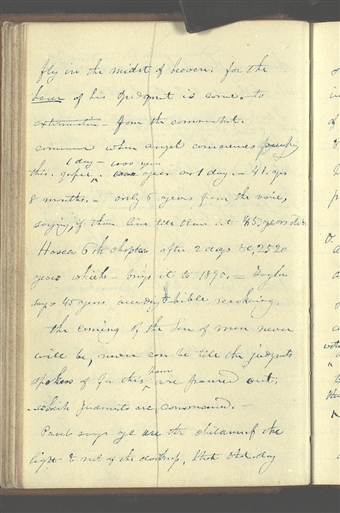 fly in the midst of heaven: for the
hour of his judgment is come - to
from the commandt.
commence when angel commences preaching
this gospel 1 day - 1000 years as 1 day - 41. yrs
8 months. - only 6 years from the voice,
saying, if thou live till thou art 85 years old
Hosea 6th chapter after 2 days &c, 2520
years which - brings it to 1890, -
says 45 years according to bible reckoning.
the coming of the Son of man never
will be, never can be till the judgmts
spoken of for this hour are poured out,
which judmts are commenced. -
Paul says ye are the children of the
light & not of the darkness, that that day